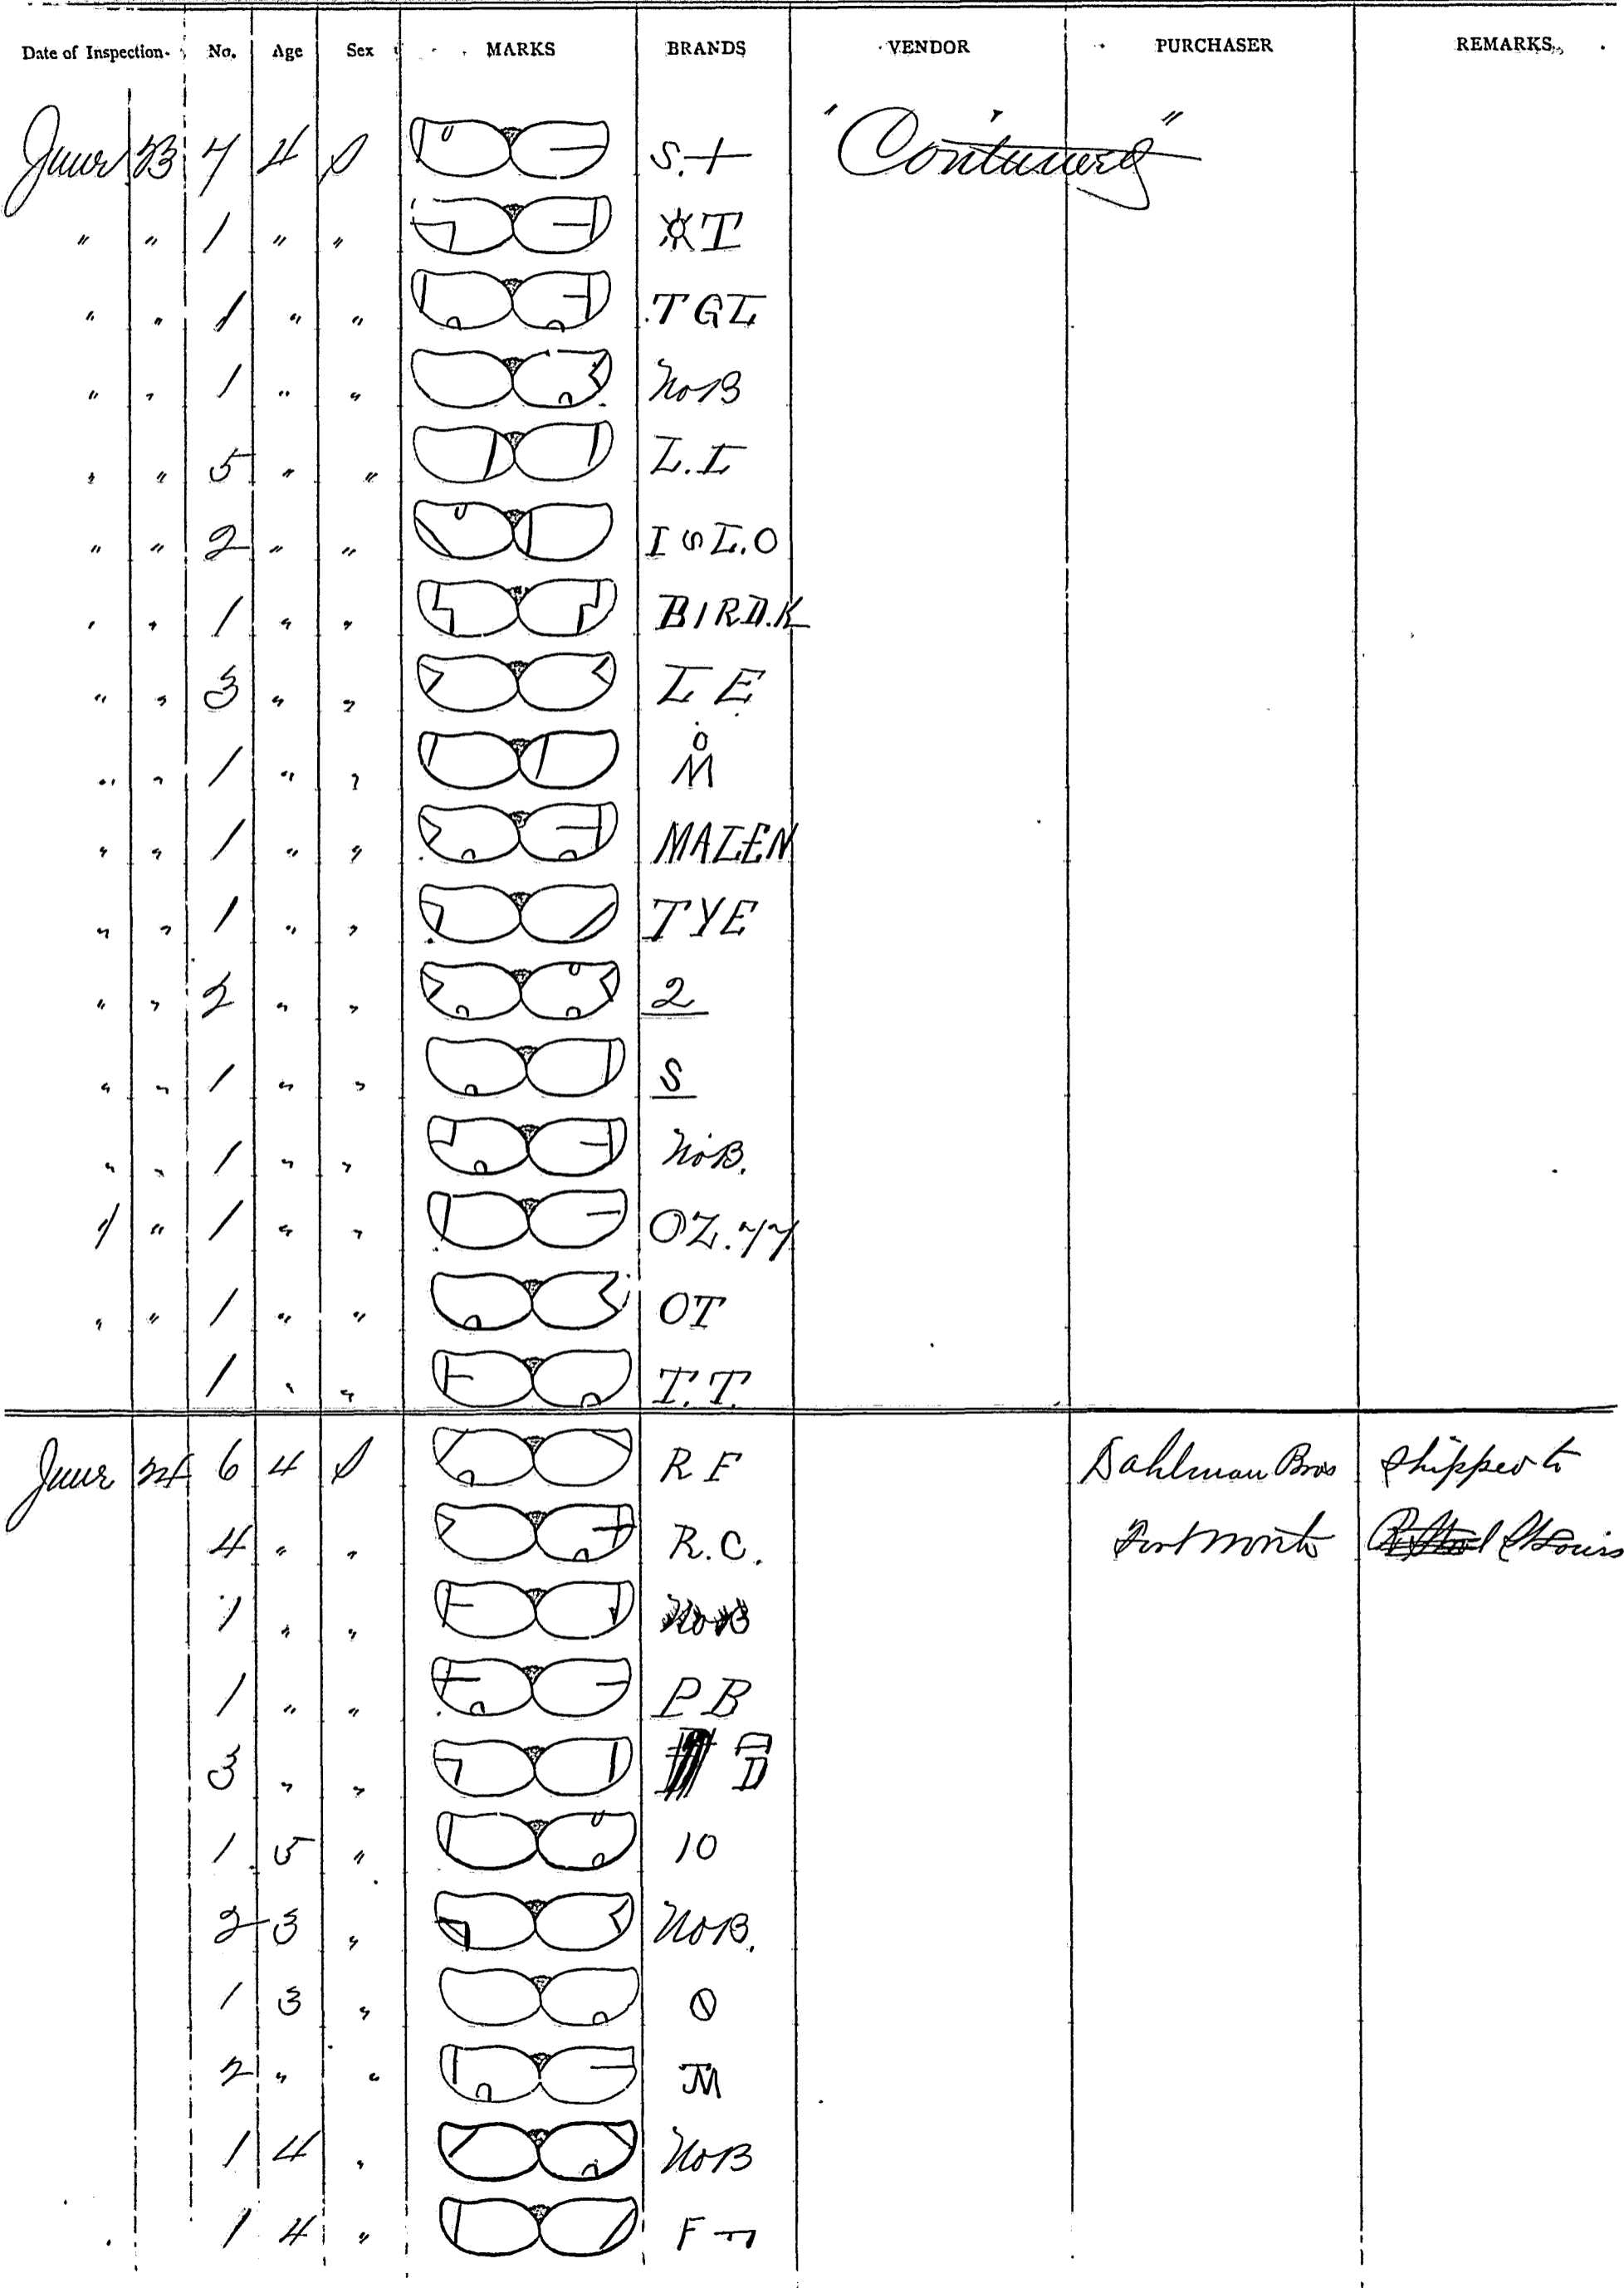 Date of Inspection No. Age Sex MARKS BRANDS VENDOR PURCHASER REMARKS
June 23 7 4 S S.+ "Continued"
" " 1 " " T
" " 1 " " TGL
" " 1 " " No B
" " 5 " " L.L
" " 2 " " I S L.O
" " 1 " " BIRD.K
" " 3 " " L E
" " 1 " " O M
" " 1 " " MALEN
" " 1 " " TYE
" " 2 " " 2
" " 1 " " S
" " 1 " " No B.
" " 1 " " OZ.77
" " 1 " " OT
1 " " T.T.
June 24 6 4 S R F Dahlman Bros Shipped to
4 " " R.C. Fort Worth St Louis
1 " " No B
1 " " P B
3 " " D
1 5 " 10
2 3 " No B.
1 3 "
2 " "
1 4 " No B
1 4 " F